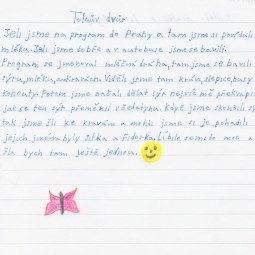 Toulcův dvůr
Jeli jsme na program do Prahy a tam jsme si povídali
mléku. Jeli jsme dobře a v autobuse jsme se bavili.
Program se jmenoval mléčná bašta, tam jsme se bavili
sýru, mléku, a o kravách. Viděli jsme tam krávu, slepice, husy
kohouty. Potom jsme začali dělat sýr nejvíc mě překvapilo
jak se ten sýr přeměnil v želatynu. Když jsme skončili sýr
tak jsme šli ke kravám a mohli jsme si je pohladit
jejich jména byly Jitka a Fiderka. Líbilo se mi to moc a
šla bych tam ještě jednou.